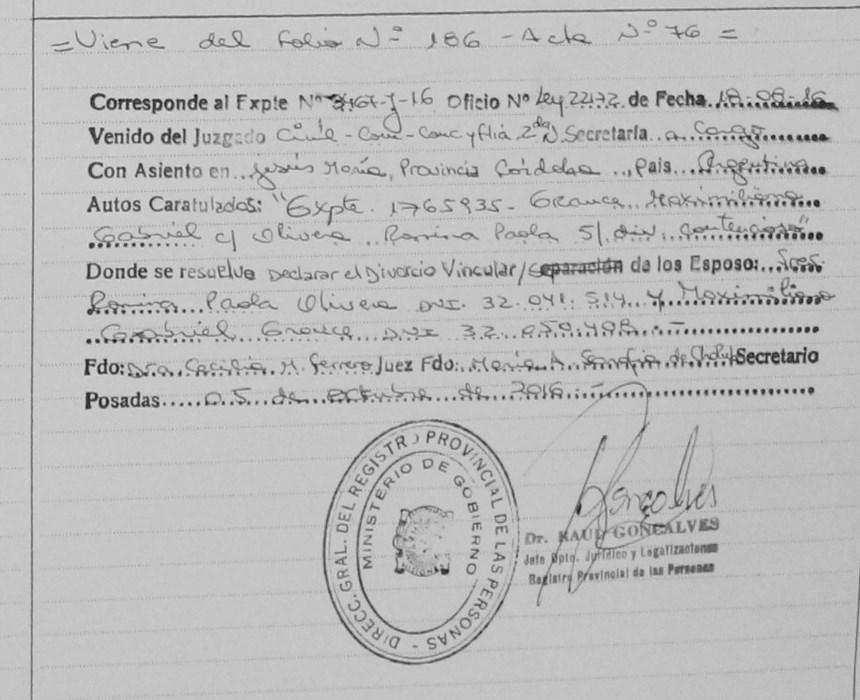 = Viene del Folio Nº 186 - Acta Nº 76 =
Corresponde al Expte Nº 3467-J-16 Oficio Nº Ley 22172 de Fecha 18-08-16
Venido del Juzgado Civil - Com - Conc y flia 2da N. Secretaría a Cargo
Con Asiento en Jesús María, Provincia Córdoba, País Argentina
Autos Caratulados: "Expte. 1765935 - Maximiliano
Gabriel c/ Olivera Romina Paola S/ div. contencioso"
Donde se resuelve Declarar el Divorcio Vincular/separación de los Esposo: Sres.
Romina Paola Olivera DNI. 32.041.514 y Maximiliano
Gabriel DNI 32.050.498.-
Fdo: Dra. Cecilia M. Ferrero Juez Fdo: María A. Secretario
Posadas 05 de octubre de 2016.-
DIRECC. GRAL. DEL REGISTRO PROVINCIAL DE LAS PERSONAS -
MINISTERIO DE GOBIERNO
Dr. RAUL GONCALVES
Jefe Dpto. Jurídico y Legalizaciones
Registro Provincial de las Personas